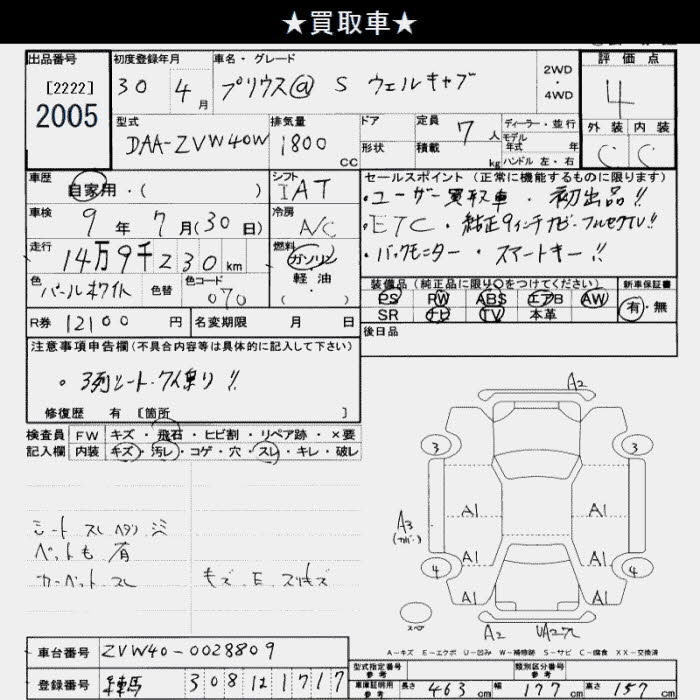 ★買取車★
出品番号
[2222]
2005
初度登録年月
30 4月
車名・グレード
プリウスⓐ S ウェルキャブ
2WD
4WD
評価点
4
外装 内装
C C
型式
DAA-ZVW40W
排気量
1800 CC
ドア
形状
定員 7 人
積載 kg
ディーラー・並行
モデル
年式 年
ハンドル 左・右
車歴
自家用・( )
シフト
IAT
車検
9年 7月(30日)
冷房
A/C
走行
14万9千230km
燃料
ガソリン
軽油
( )
色
パールホワイト
色替
色コード
070
R券 12100 円
名変期限 月 日
セールスポイント(正常に機能するものに限ります)
・ユーザー買取車・初出品!!
・ETC・純正9インチナビ・フルセグTV!!
・バックモニター・スマートキー!!
装備品(純正品に限り○をつけてください)
PS PW ABS エアB AW
SR ナビ TV 本革
新車保証書
有・無
後日品
注意事項申告欄(不具合内容等は具体的に記入して下さい)
。3列シート・7人乗り!!
修復歴 有 [箇所 ]
検査員 FW キズ・飛石・ヒビ割・リペア跡・×要
記入欄 内装 キズ・汚レ・コゲ・穴・スレ・キレ・破レ
シート スレ ヘタリ シミ
ペットも 有
カーペット スレ
A2
3 3
A1 A1
A3
(カバー)
A1 A1
4 4
A1 A1
スペア
A2
A-キズ E-エクボ U-凹み W-補修跡 S-サビ C-腐食 XX-交換済
車台番号 ZVW40-0028809
登録番号 308 1717
型式指定番号
参考
類別区分番号
参考
車庫証明用
参考
長さ 463 cm 幅 177 cm 高さ 157 cm